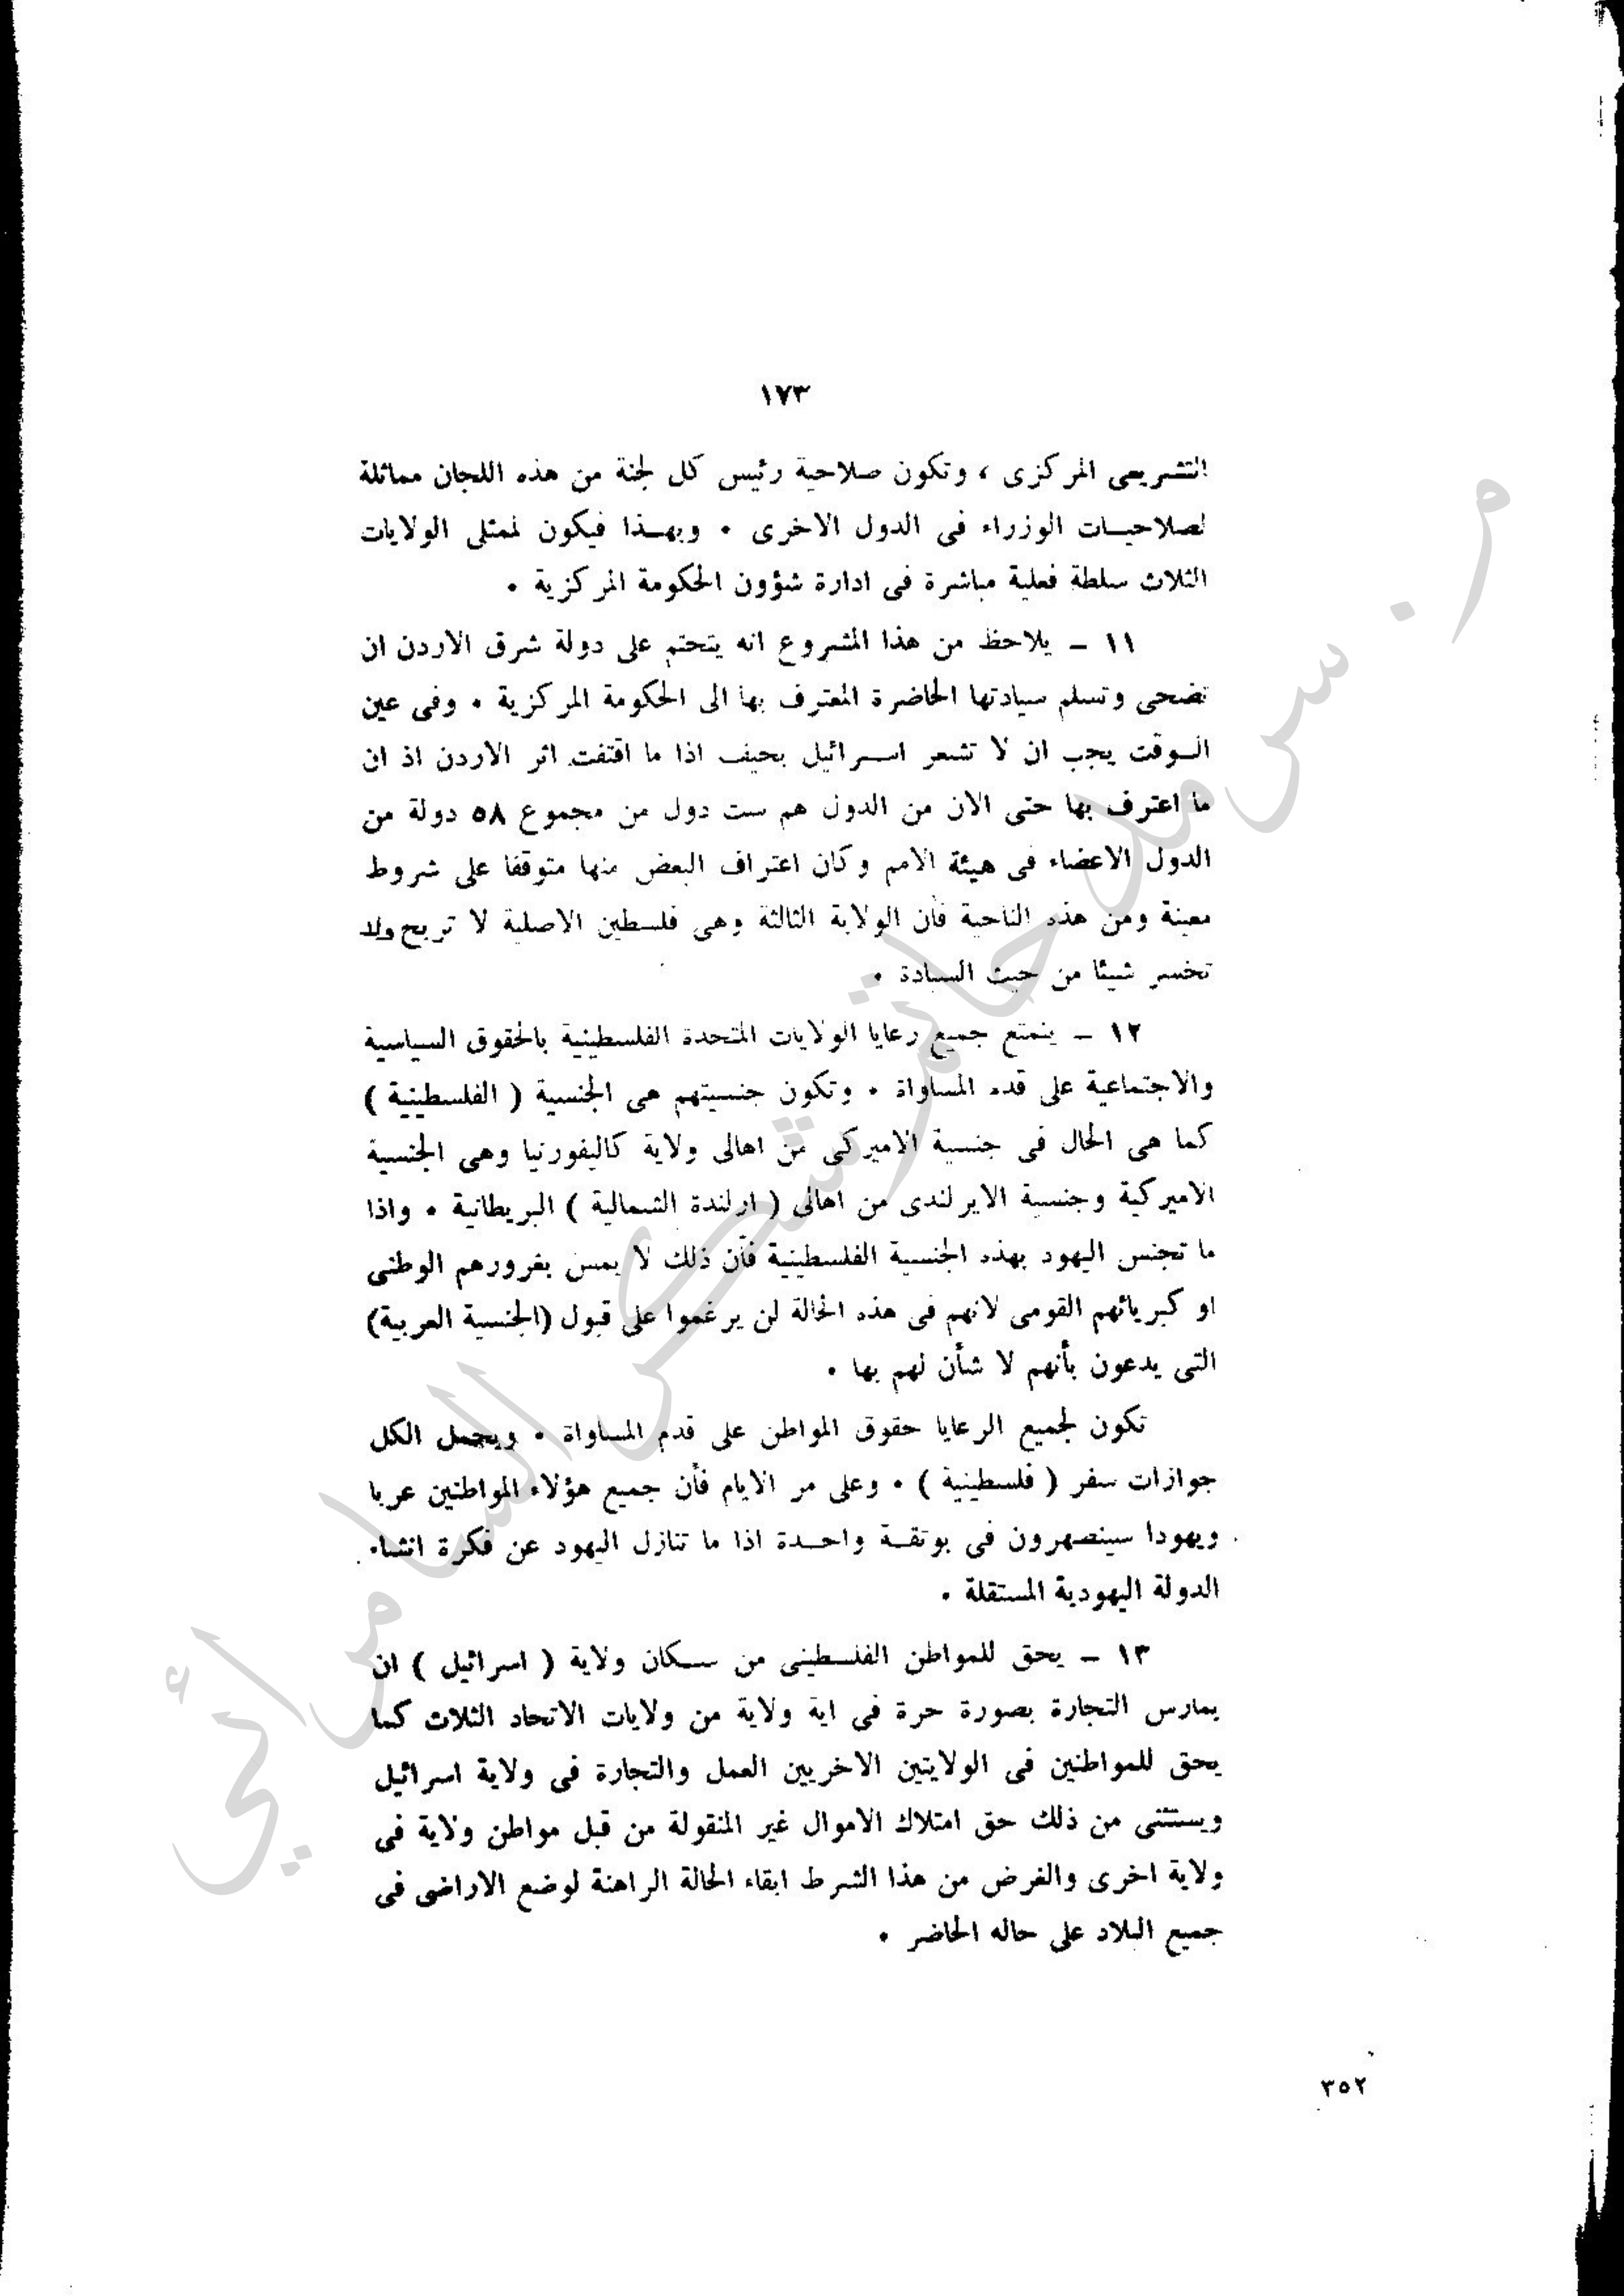 ١٧٣
التشريعى المركزى ، وتكون صلاحية رئيس كل لجنة من هذه اللجان مماثلة
لصلاحيات الوزراء فى الدول الاخرى ٠ وبهذا فيكون لممثلى الولايات
الثلاث سلطة فعلية مباشرة فى ادارة شؤون الحكومة المركزية ٠
١١ ـ يلاحظ من هذا المشروع انه يتحتم على دولة شرق الاردن ان
تضحى وتسلم سيادتها الحاضرة المعترف بها الى الحكومة المركزية ٠ وفى عين
الوقت يجب ان لا تشعر اسرائيل بحيف اذا ما اقتفت اثر الاردن اذ ان
ما اعترف بها حتى الان من الدول هم ست دول من مجموع ٥٨ دولة من
الدول الاعضاء فى هيئة الامم وكان اعتراف البعض منها متوقفا على شروط
معينة ومن هذه الناحية فأن الولاية الثالثة وهى فلسطين الاصلية لا تربح ولا
تخسر شيئا من حيث السيادة ٠
١٢ ـ يتمتع جميع رعايا الولايات المتحدة الفلسطينية بالحقوق السياسية
والاجتماعية على قدم المساواة ٠ وتكون جنسيتهم هى الجنسية ( الفلسطينية )
كما هى الحال فى جنسية الاميركى من اهالى ولاية كاليفورنيا وهى الجنسية
الاميركية وجنسية الايرلندى من اهالى ( ارلندة الشمالية ) البريطانية ٠ واذا
ما تجنس اليهود بهذه الجنسية الفلسطينية فأن ذلك لا يمس بغرورهم الوطنى
او كبريائهم القومى لانهم فى هذه الحالة لن يرغموا على قبول (الجنسية العربية)
التى يدعون بأنهم لا شأن لهم بها ٠
تكون لجميع الرعايا حقوق المواطن على قدم المساواة ٠ ويحمل الكل
جوازات سفر ( فلسطينية ) ٠ وعلى مر الايام فأن جميع هؤلاء المواطنين عربا
ويهودا سينصهرون فى بوتقة واحدة اذا ما تنازل اليهود عن فكرة انشاء
الدولة اليهودية المستقلة ٠
١٣ ـ يحق للمواطن الفلسطينى من سكان ولاية ( اسرائيل ) ان
يمارس التجارة بصورة حرة فى اية ولاية من ولايات الاتحاد الثلاث كما
يحق للمواطنين فى الولايتين الاخريين العمل والتجارة فى ولاية اسرائيل
ويستثنى من ذلك حق امتلاك الاموال غير المنقولة من قبل مواطن ولاية فى
ولاية اخرى والغرض من هذا الشرط ابقاء الحالة الراهنة لوضع الاراضى فى
جميع البلاد على حاله الحاضر ٠
٣٥٢
م. سرمد حاتم شكر السامرائي